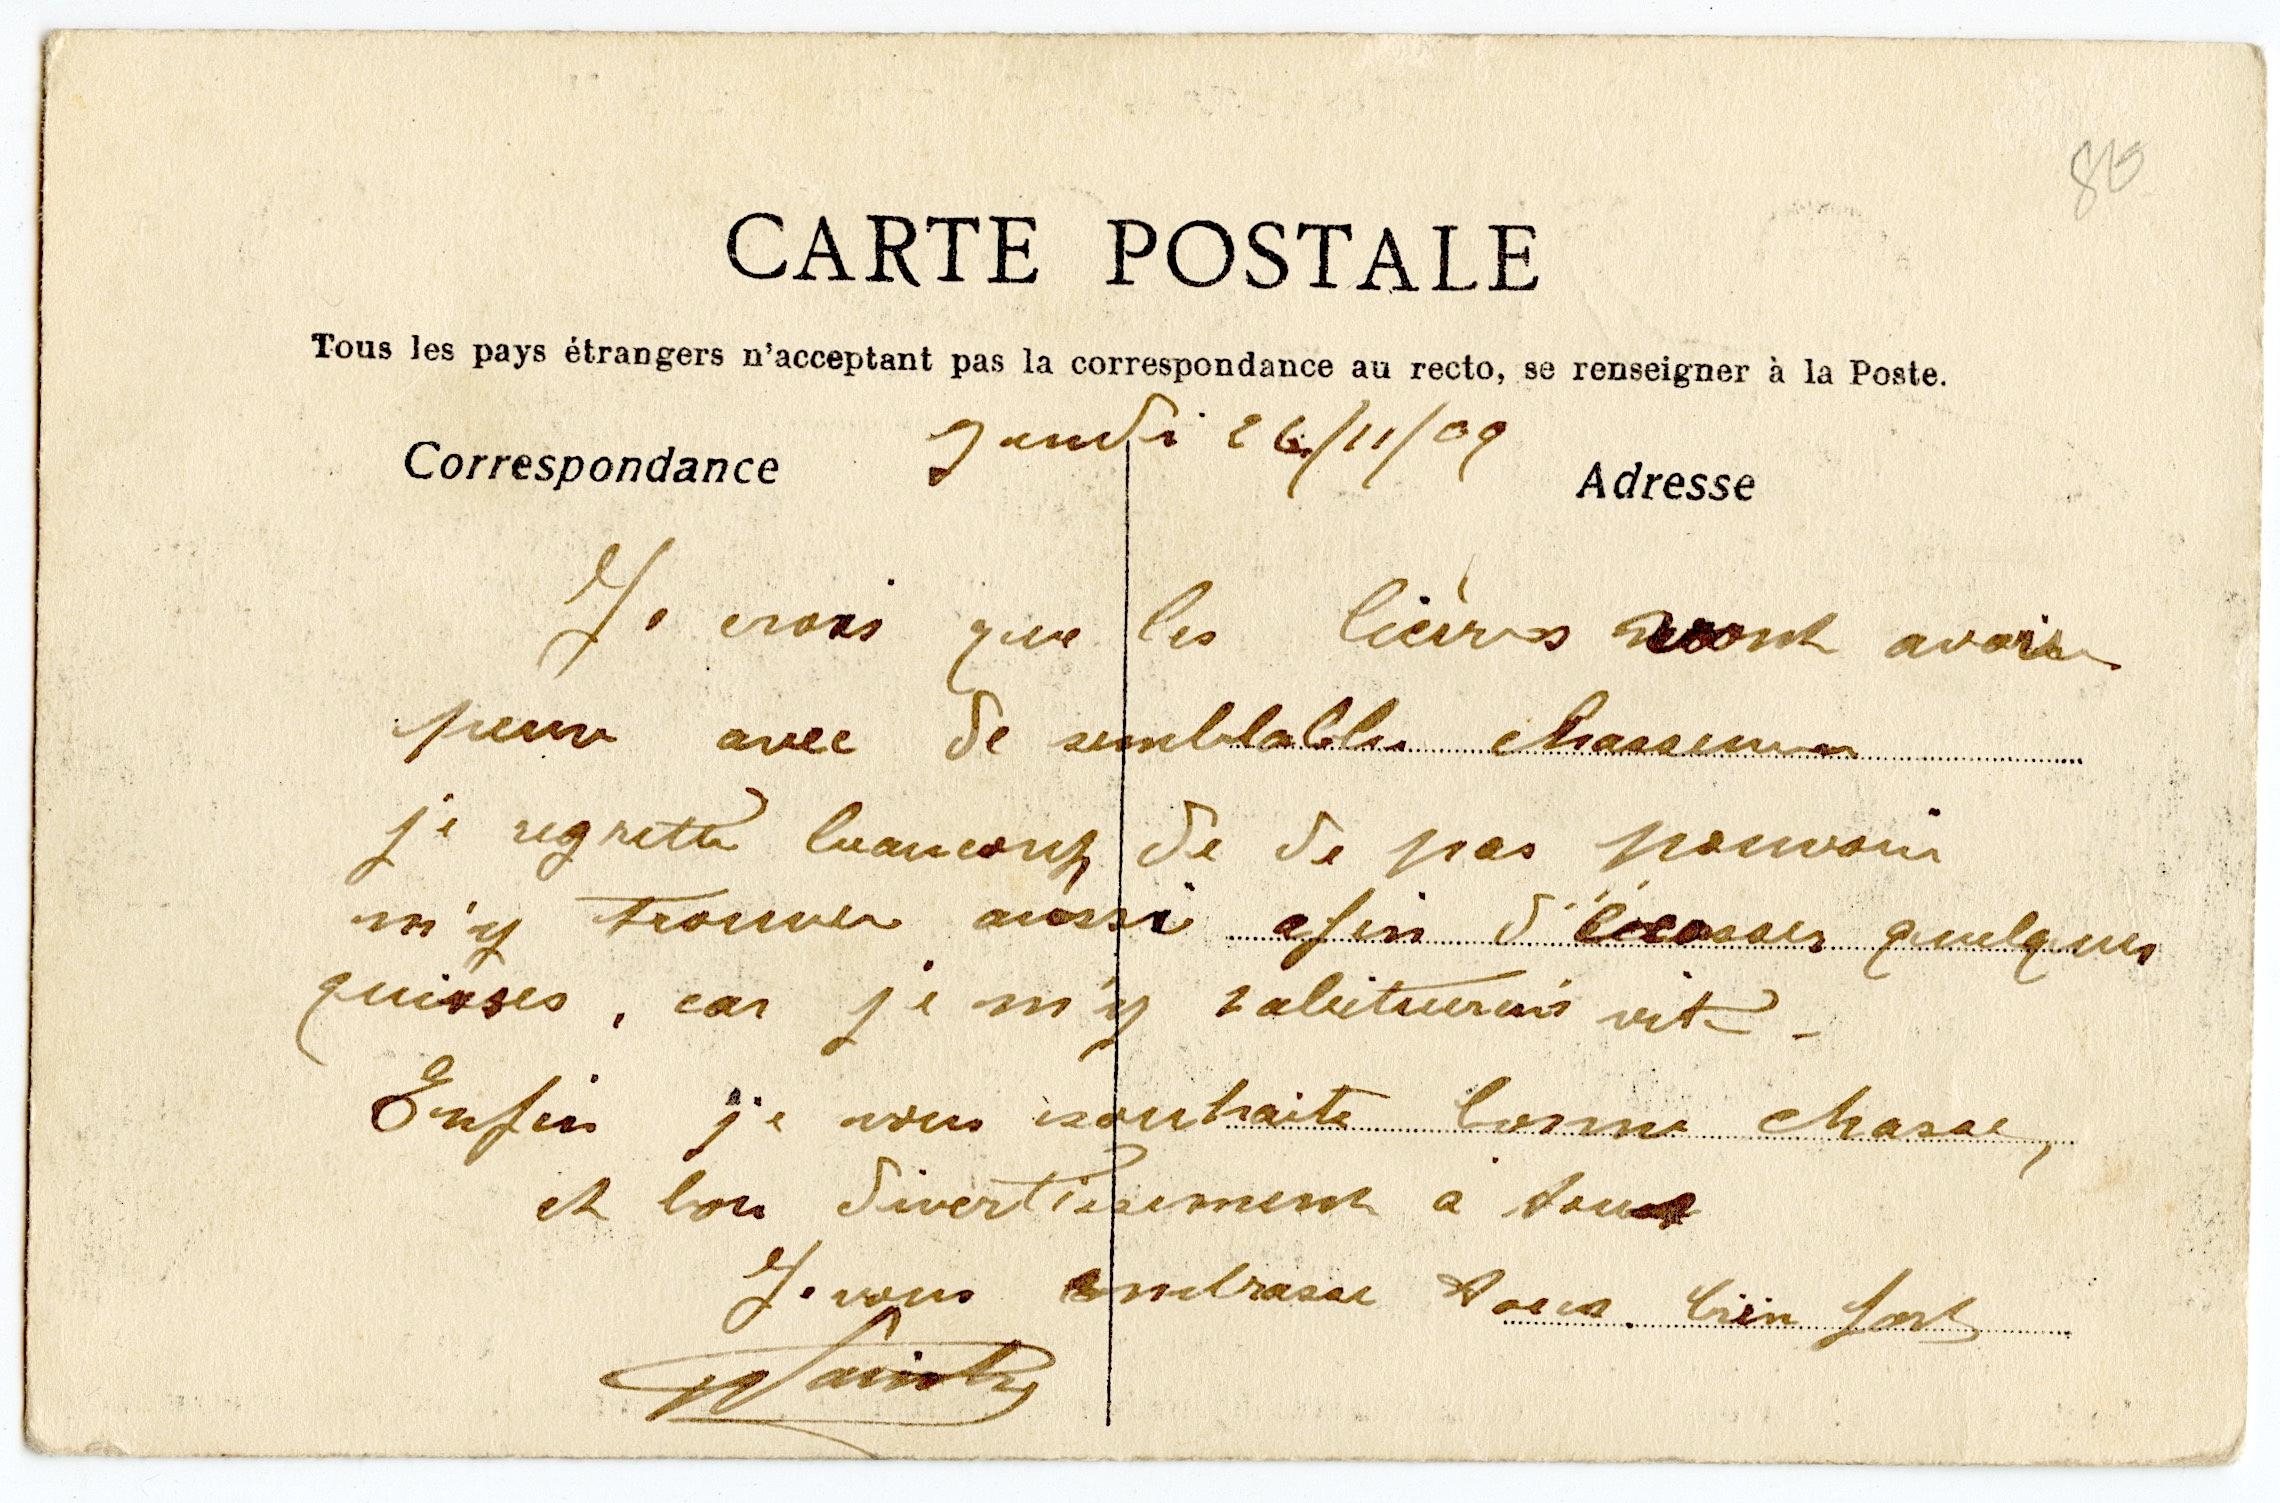 80
CARTE POSTALE
Tous les pays étrangers n'acceptant pas la correspondance au recto, se renseigner à la Poste.
Jeudi 26/11/09
Correspondance
Adresse
Je crois que les lièvres vont avoir
peur avec de semblables chasseurs
je regrette beaucoup de de pas pouvoir
m'y trouver aussi afin d'écosser quelques
quisses, car je m'y habituerais vite -
Enfin je vous souhaite bonne chasse,
et bon divertissement à tous
Je vous embrasse tous bien fort